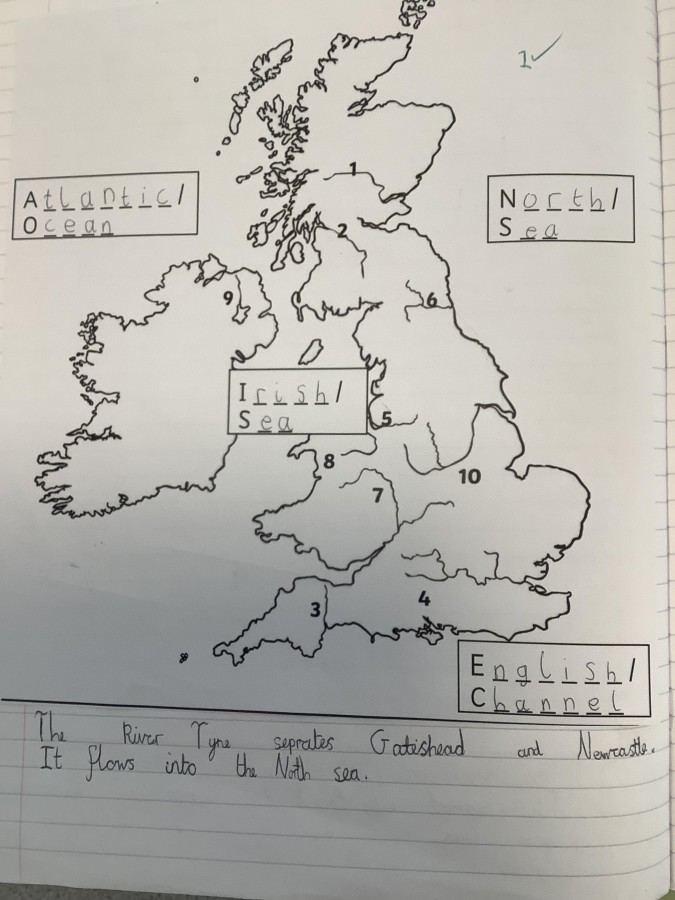 1✓
1
Atlantic/
Ocean
North/
Sea
2
9
6
Irish/
Sea
5
8
10
7
3
4
English/
Channel
The River Tyne seprates Gateshead and Newcastle.
It flows into the North sea.